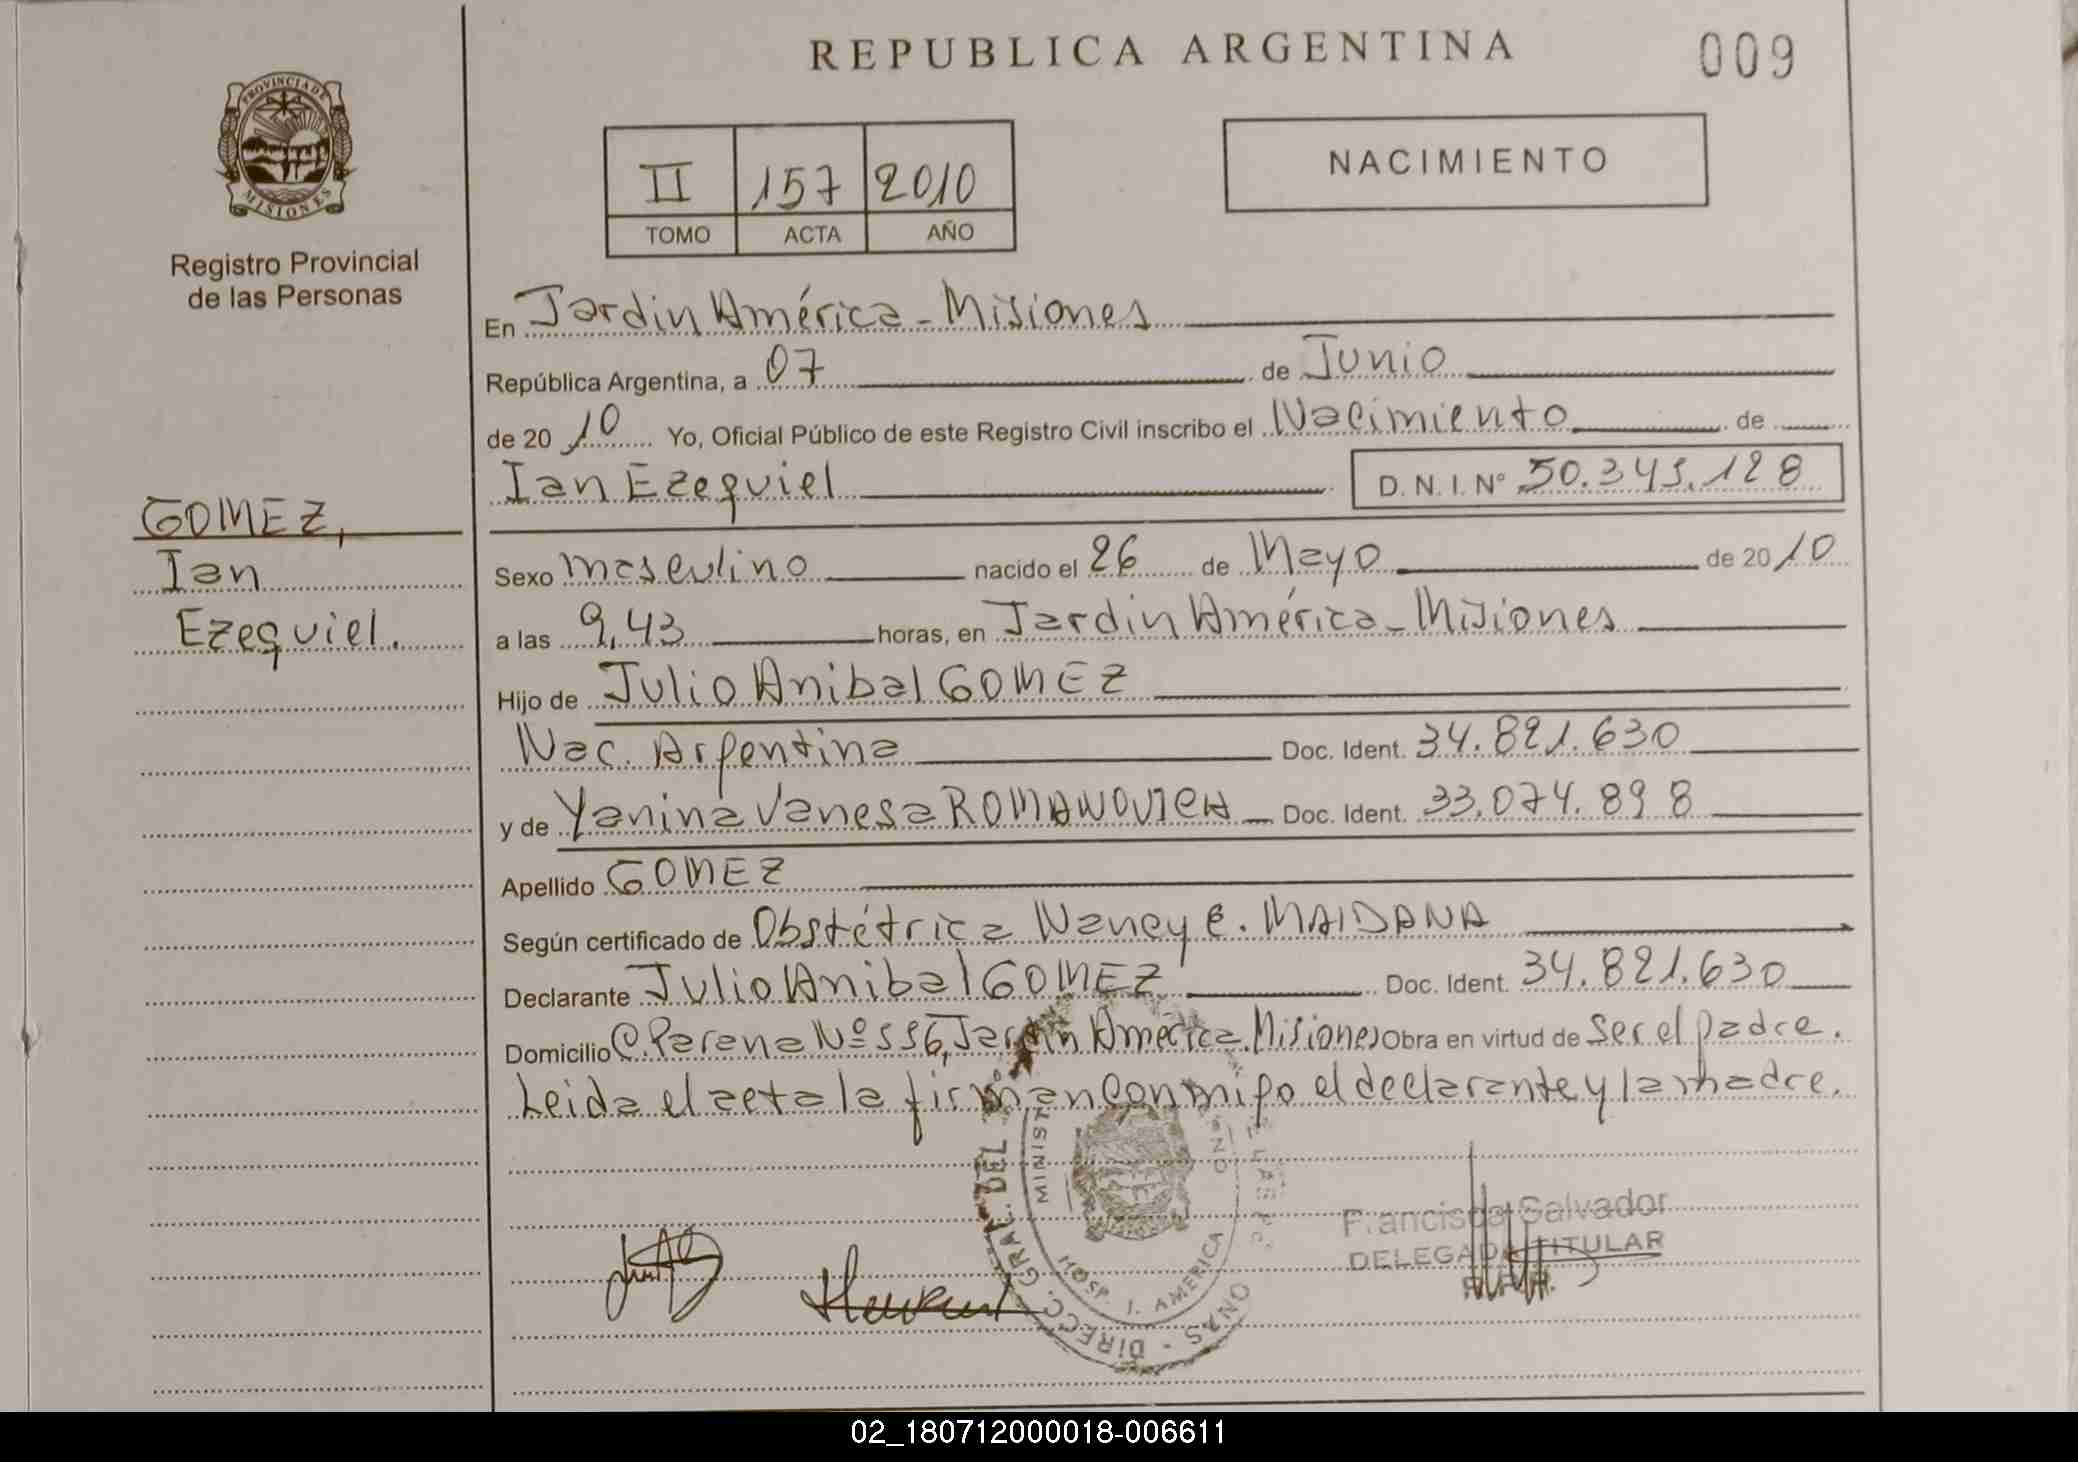 REPUBLICA ARGENTINA
009
PROVINCIA DE
MISIONES
Registro Provincial
de las Personas
II 157 2010
TOMO ACTA AÑO
NACIMIENTO
En Jardin América - Misiones
República Argentina, a 07 de Junio
de 2010 Yo, Oficial Público de este Registro Civil inscribo el Nacimiento de
Ian Ezequiel D. N. I. N° 50.343.128
GOMEZ,
Ian
Ezequiel.
Sexo masculino nacido el 26 de Mayo de 2010
a las 9,43 horas, en Jardin América - Misiones
Hijo de Julio Anibal GOMEZ
Nac. Argentina Doc. Ident. 34.821.630
y de Yanina Vanesa ROMANOVICH Doc. Ident. 33.074.898
Apellido GOMEZ
Según certificado de Obstétrica Nancy E. MAIDANA
Declarante Julio Anibal GOMEZ Doc. Ident. 34.821.630
Domicilio C. Parana Nº 556, Jardin América. Misiones Obra en virtud de Ser el padre.
Leida el acta la firman conmigo el declarante y la madre.
DIRECC. GRAL. DEL
HOSP. J. AMERICA
Francisca Salvador
DELEGADA TITULAR
02_180712000018-006611